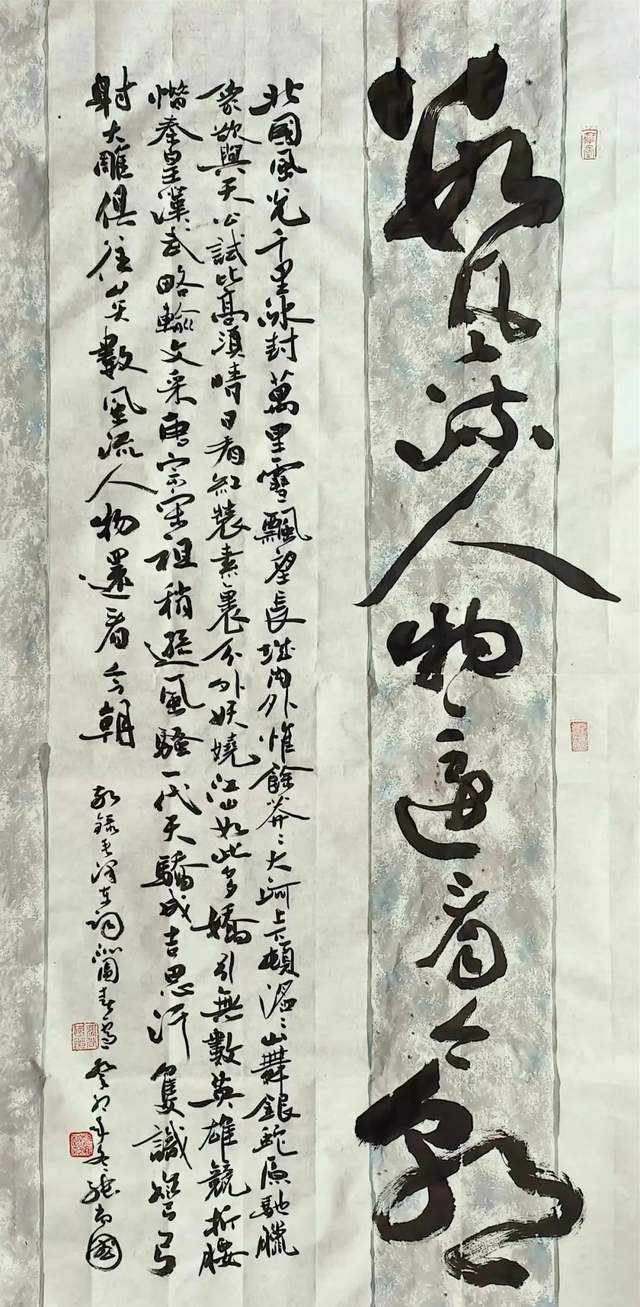 数风流人物还看今朝
北國風光千里冰封萬里雪飄望長城内外惟餘莽〻大河上下頓滔〻山舞銀蛇原馳臘
象欲與天公試比高須晴日看紅裝素裹分外妖嬈江山如此多嬌引無數英雄競折腰
惜秦皇漢武略輸文采唐宗宋祖稍遜風騷一代天驕成吉思汗隻識彎弓
射大雕俱往矣數風流人物還看今朝
敬錄毛澤東詞沁園春雪 癸卯年冬張國